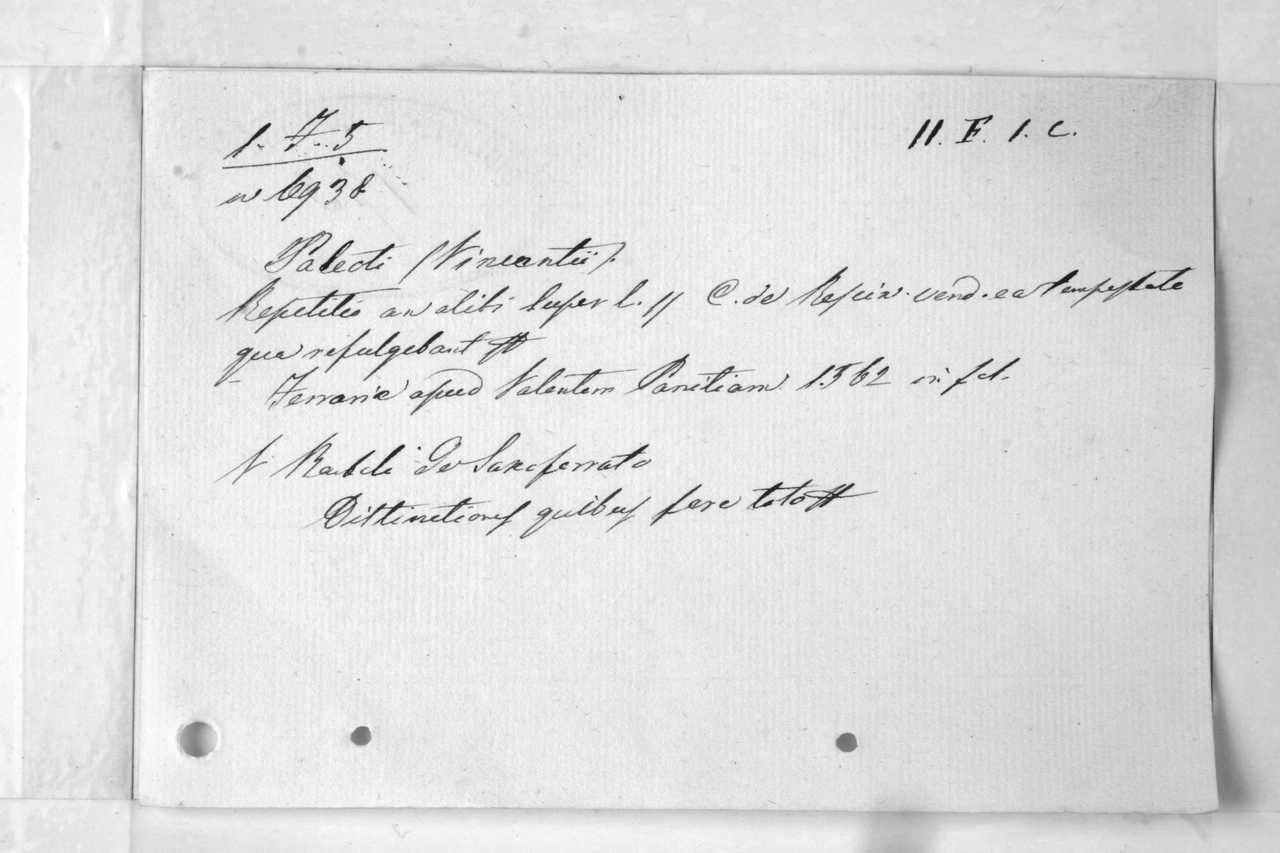 1. 7. 5
nº 6938
11. F. 1. C.
Paleoti (Vincentii).
Repetitio an alibi super l. 11 C. de Rescin. vend. ea tempestate
qua refulgebant #
Ferrariæ apud Valentem Panitiam 1562 in fol.
V Bartoli De Saxoferrato
Distinctiones quibus fere toto #